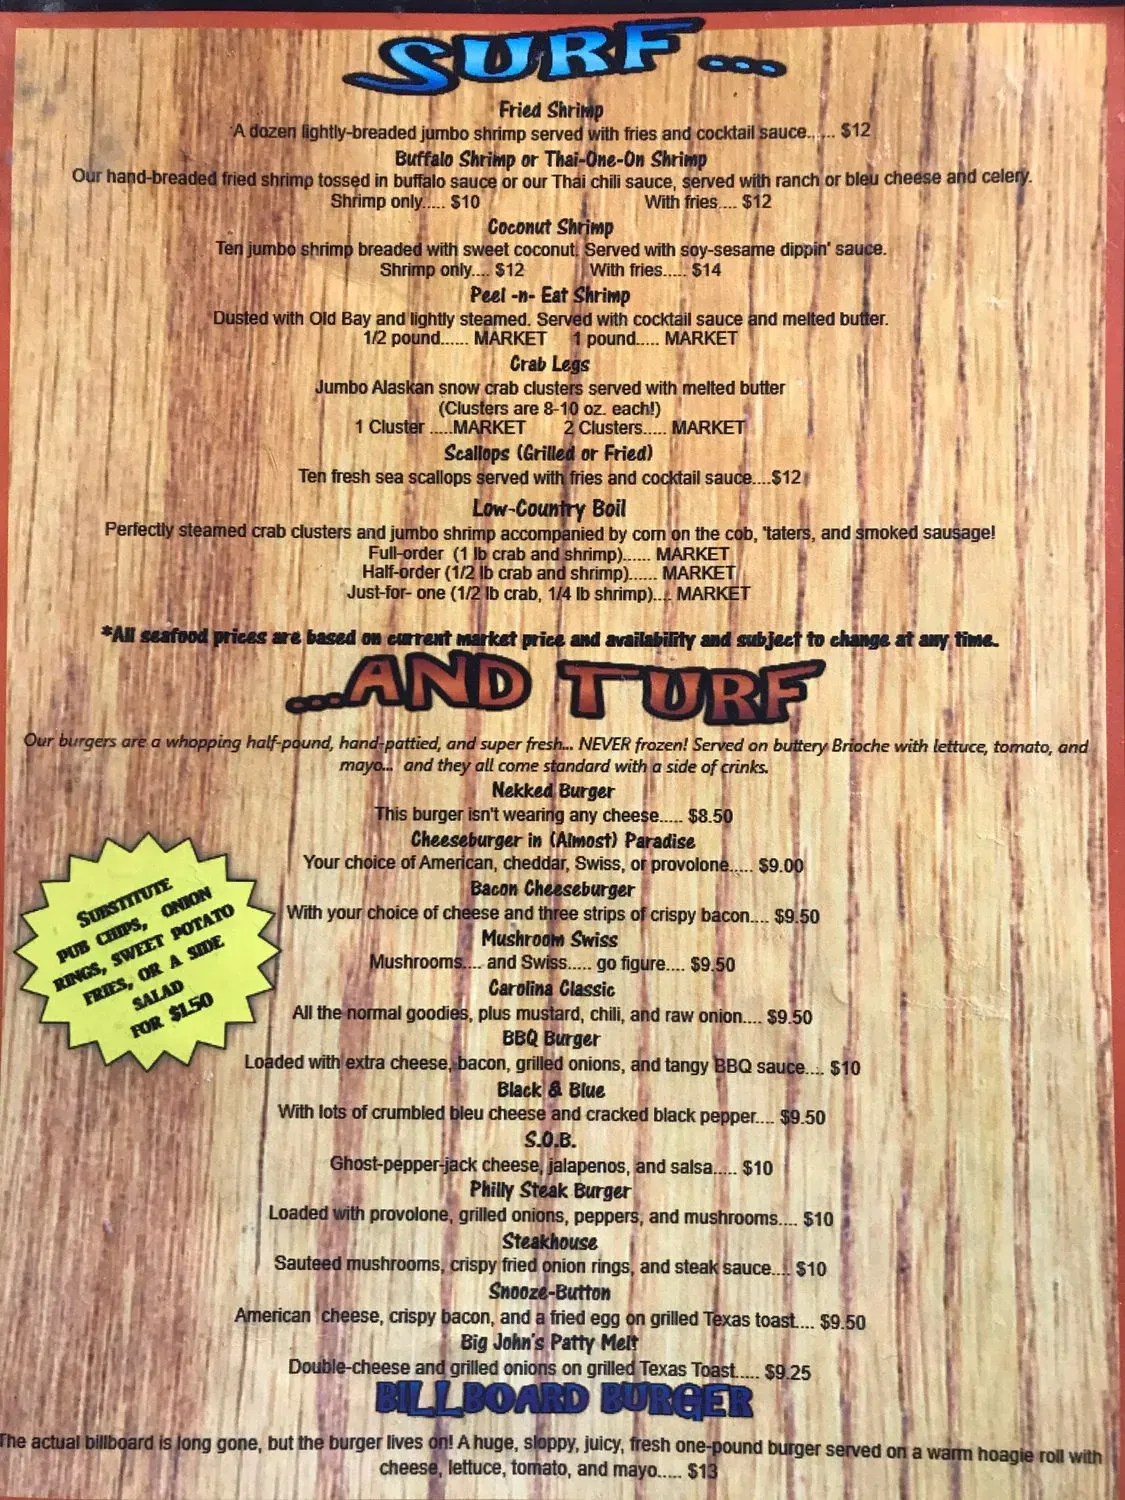 SURF...
Fried Shrimp
A dozen lightly-breaded jumbo shrimp served with fries and cocktail sauce...... $12
Buffalo Shrimp or Thai-One-On Shrimp
Our hand-breaded fried shrimp tossed in buffalo sauce or our Thai chili sauce, served with ranch or bleu cheese and celery.
Shrimp only..... $10 With fries.... $12
Coconut Shrimp
Ten jumbo shrimp breaded with sweet coconut. Served with soy-sesame dippin' sauce.
Shrimp only.... $12 With fries..... $14
Peel -n- Eat Shrimp
Dusted with Old Bay and lightly steamed. Served with cocktail sauce and melted butter.
1/2 pound...... MARKET 1 pound..... MARKET
Crab Legs
Jumbo Alaskan snow crab clusters served with melted butter
(Clusters are 8-10 oz. each!)
1 Cluster .....MARKET 2 Clusters..... MARKET
Scallops (Grilled or Fried)
Ten fresh sea scallops served with fries and cocktail sauce....$12
Low-Country Boil
Perfectly steamed crab clusters and jumbo shrimp accompanied by corn on the cob, 'taters, and smoked sausage!
Full-order (1 lb crab and shrimp)...... MARKET
Half-order (1/2 lb crab and shrimp)...... MARKET
Just-for- one (1/2 lb crab, 1/4 lb shrimp).... MARKET
*All seafood prices are based on current market price and availability and subject to change at any time.
...AND TURF
Our burgers are a whopping half-pound, hand-pattied, and super fresh... NEVER frozen! Served on buttery Brioche with lettuce, tomato, and
mayo... and they all come standard with a side of crinks.
Nekked Burger
This burger isn't wearing any cheese..... $8.50
Cheeseburger in (Almost) Paradise
Your choice of American, cheddar, Swiss, or provolone..... $9.00
Bacon Cheeseburger
With your choice of cheese and three strips of crispy bacon.... $9.50
Mushroom Swiss
Mushrooms.... and Swiss..... go figure.... $9.50
Carolina Classic
All the normal goodies, plus mustard, chili, and raw onion.... $9.50
BBQ Burger
Loaded with extra cheese, bacon, grilled onions, and tangy BBQ sauce.... $10
Black & Blue
With lots of crumbled bleu cheese and cracked black pepper.... $9.50
S.O.B.
Ghost-pepper-jack cheese, jalapenos, and salsa..... $10
Philly Steak Burger
Loaded with provolone, grilled onions, peppers, and mushrooms.... $10
Steakhouse
Sauteed mushrooms, crispy fried onion rings, and steak sauce.... $10
Snooze-Button
American cheese, crispy bacon, and a fried egg on grilled Texas toast.... $9.50
Big John's Patty Melt
Double-cheese and grilled onions on grilled Texas Toast..... $9.25
SUBSTITUTE
PUB CHIPS, ONION
RINGS, SWEET POTATO
FRIES, OR A SIDE
SALAD
FOR $1.50
BILLBOARD BURGER
The actual billboard is long gone, but the burger lives on! A huge, sloppy, juicy, fresh one-pound burger served on a warm hoagie roll with
cheese, lettuce, tomato, and mayo..... $13